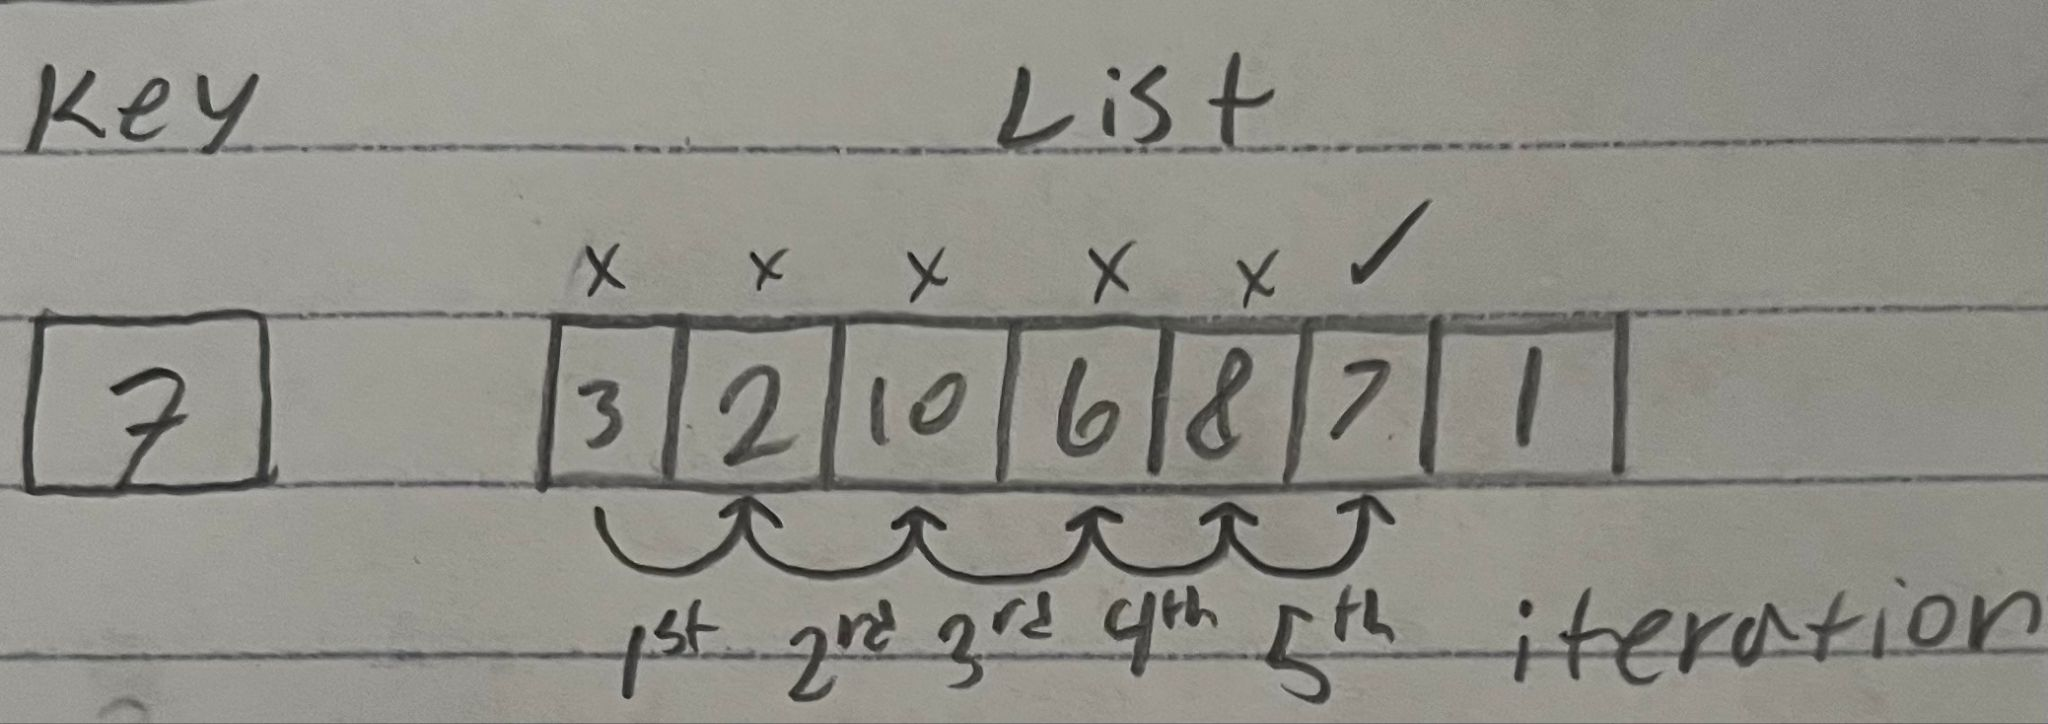 Key List
x x x x x ✓
7 3 2 10 6 8 7 1
1st 2rd 3rd 4th 5th iteration